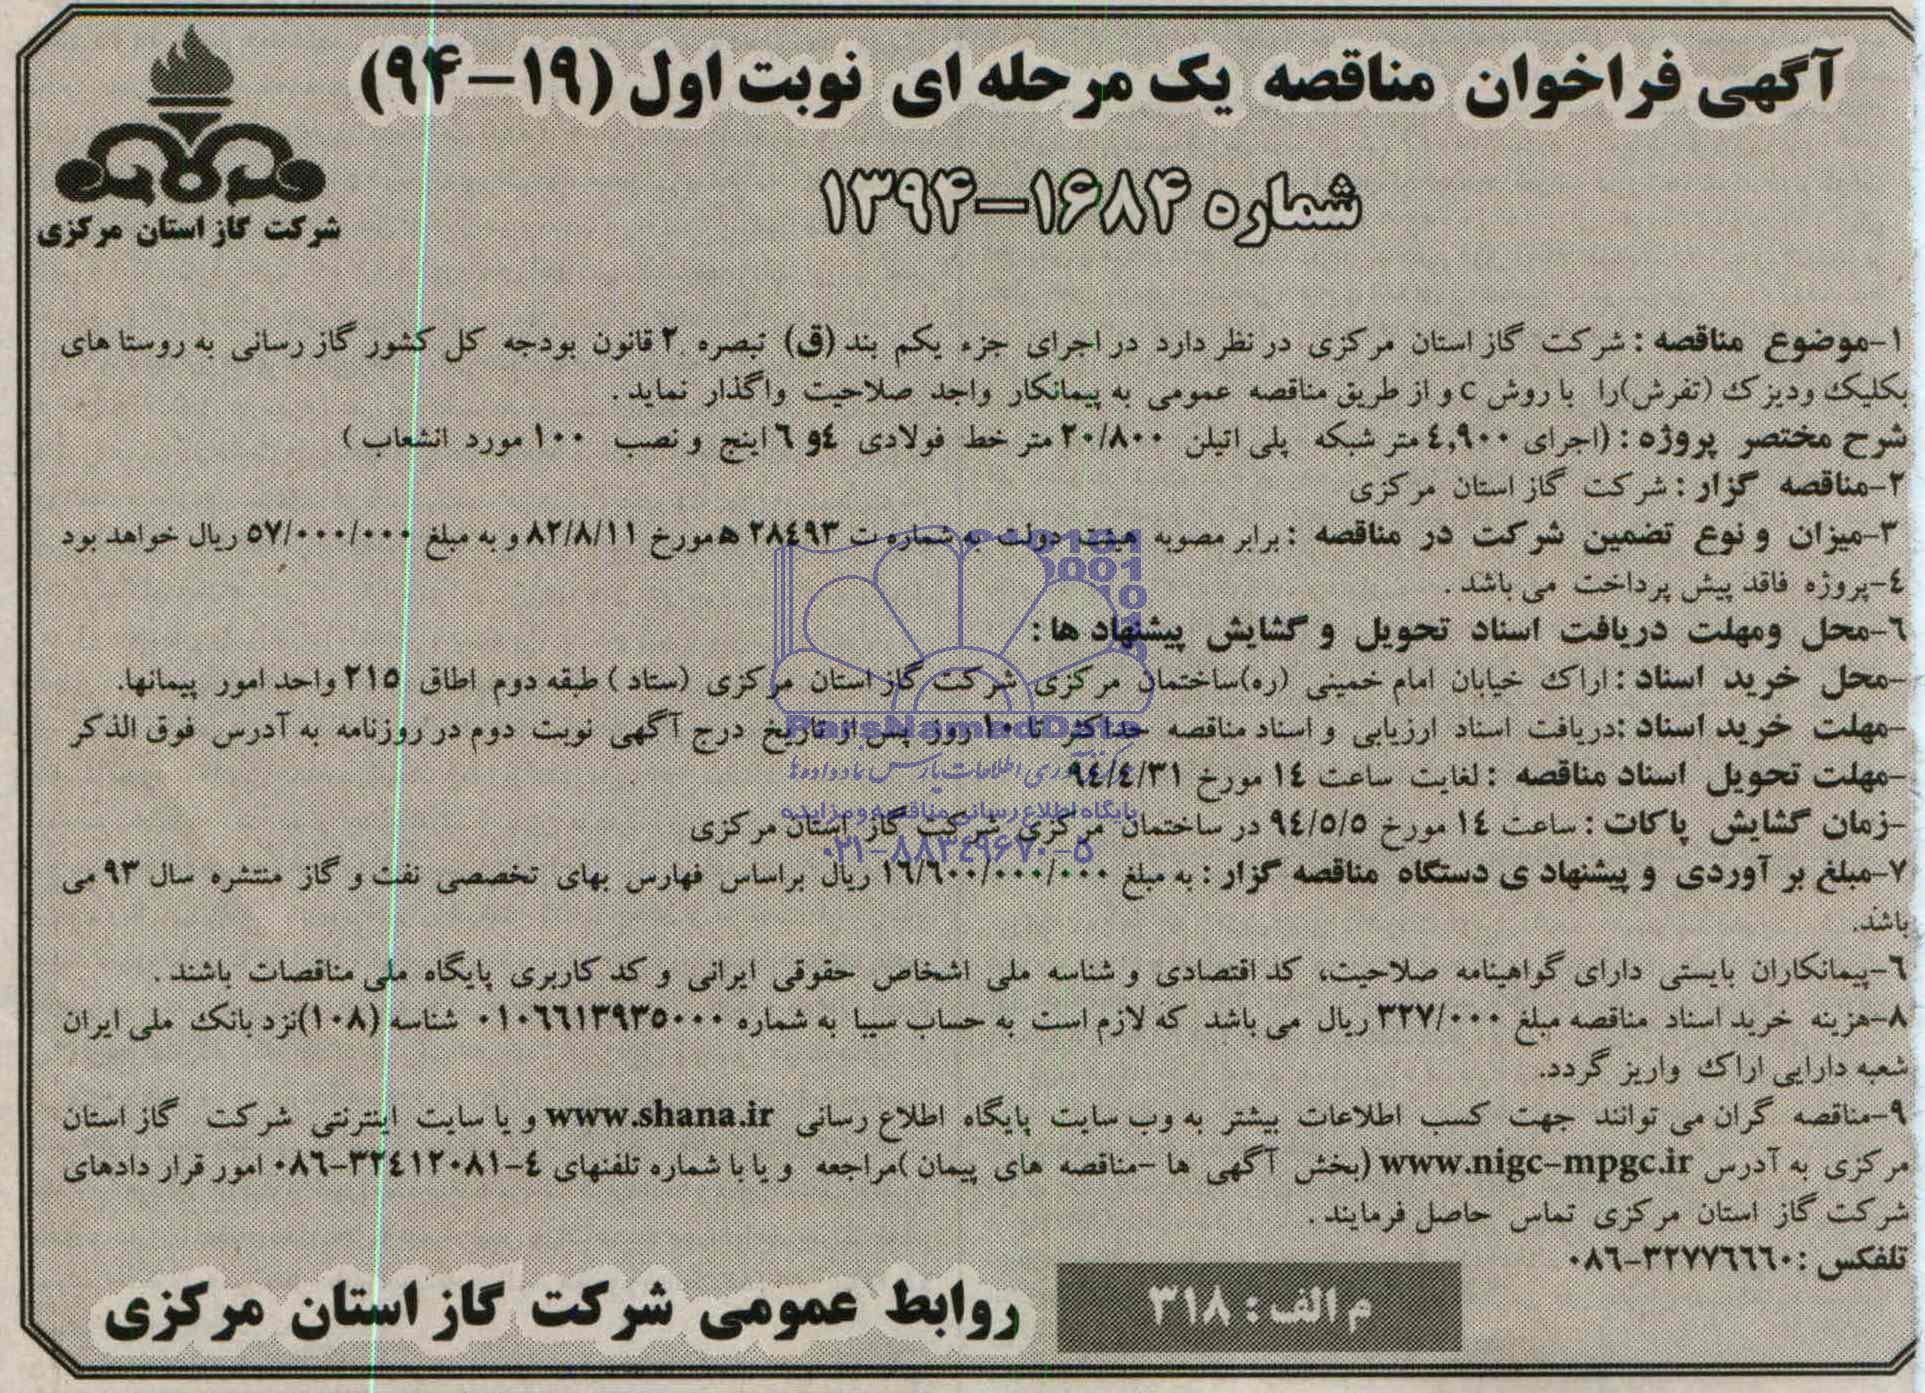 آگهی فراخوان مناقصه یک مرحله ای نوبت اول (۱۹-۹۴)
شماره ۱۶۸۴-۱۳۹۴
شرکت گاز استان مرکزی
۱-موضوع مناقصه : شرکت گاز استان مرکزی در نظر دارد در اجرای جزء یکم بند (ق) تبصره ۲ قانون بودجه کل کشور گاز رسانی به روستا های
بکلیک ودیزک (تفرش)را با روش c و از طریق مناقصه عمومی به پیمانکار واجد صلاحیت واگذار نماید .
شرح مختصر پروژه : (اجرای ٤,۹۰۰ متر شبکه پلی اتیلن ۲۰/۸۰۰ متر خط فولادی ٤و ٦ اینچ و نصب ۱۰۰ مورد انشعاب )
۲-مناقصه گزار : شرکت گاز استان مرکزی
۳-میزان و نوع تضمین شرکت در مناقصه : برابر مصوبه هیئت دولت به شماره ت ۲۸٤۹۳ ه مورخ ۸۲/۸/۱۱ و به مبلغ ۵۷/۰۰۰/۰۰۰ ریال خواهد بود
٤-پروژه فاقد پیش پرداخت می باشد .
٦-محل ومهلت دریافت اسناد تحویل و گشایش پیشنهاد ها :
-محل خرید اسناد : اراک خیابان امام خمینی (ره)ساختمان مرکزی شرکت گاز استان مرکزی (ستاد ) طبقه دوم اطاق ۲۱۵ واحد امور پیمانها.
-مهلت خرید اسناد :دریافت اسناد ارزیابی و اسناد مناقصه حداکثر تا ۱۰ روز پس از تاریخ درج آگهی نوبت دوم در روزنامه به آدرس فوق الذکر
-مهلت تحویل اسناد مناقصه : لغایت ساعت ۱٤ مورخ ۹٤/٤/۳۱
-زمان گشایش پاکات : ساعت ۱٤ مورخ ۹٤/۵/۵ در ساختمان مرکزی شرکت گاز استان مرکزی
۷-مبلغ بر آوردی و پیشنهاد ی دستگاه مناقصه گزار : به مبلغ ۱٦/٦۰۰/۰۰۰/۰۰۰ ریال براساس فهارس بهای تخصصی نفت و گاز منتشره سال ۹۳ می
باشد.
٦-پیمانکاران بایستی دارای گواهینامه صلاحیت، کد اقتصادی و شناسه ملی اشخاص حقوقی ایرانی و کد کاربری پایگاه ملی مناقصات باشند .
۸-هزینه خرید اسناد مناقصه مبلغ ۳۲۷/۰۰۰ ریال می باشد که لازم است به حساب سیبا به شماره ۰۱۰٦٦۱۳۹۳۵۰۰۰ شناسه (۱۰۸)نزد بانک ملی ایران
شعبه دارایی اراک واریز گردد.
۹-مناقصه گران می توانند جهت کسب اطلاعات بیشتر به وب سایت پایگاه اطلاع رسانی www.shana.ir و یا سایت اینترنتی شرکت گاز استان
مرکزی به آدرس www.nigc-mpgc.ir (بخش آگهی ها -مناقصه های پیمان )مراجعه و یا با شماره تلفنهای ٤-۳۲٤۱۲۰۸۱-۰۸٦ امور قرار دادهای
شرکت گاز استان مرکزی تماس حاصل فرمایند .
تلفکس : ۳۲۷۷٦٦٦۰-۰۸٦
م الف : ۳۱۸
روابط عمومی شرکت گاز استان مرکزی
ParsNamadData
پایگاه اطلاع رسانی مناقصه و مزایده
۰۲۱-۸۸۳۴۹۶۷۰-۵